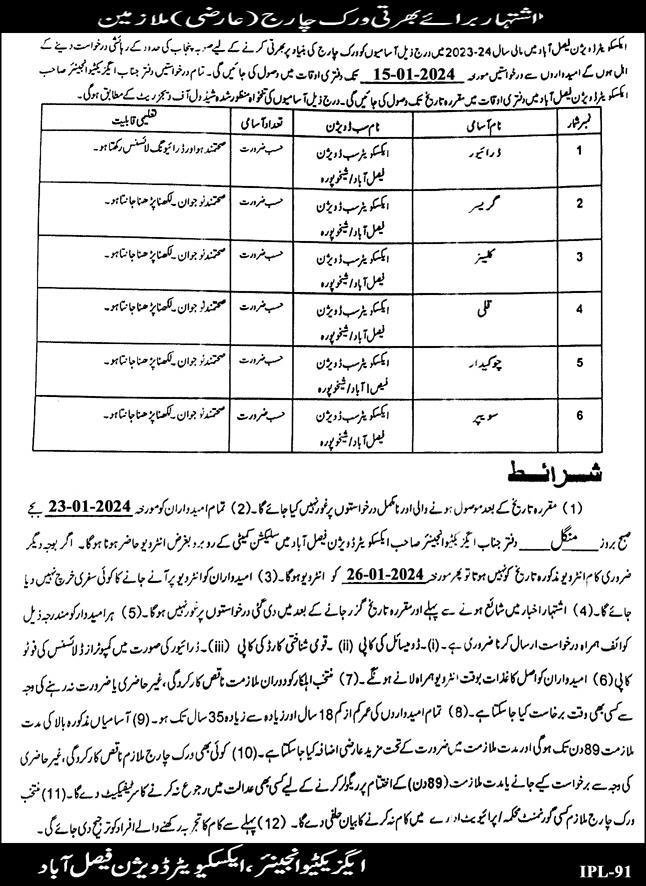 اشتہار برائے بھرتی ورک چارج (عارضی) ملازمین
ایکسکیویٹر ڈویژن فیصل آباد میں مالی سال 24-2023 میں درج ذیل آسامیوں کو ورک چارج کی بنیاد پر بھرتی کرنے کے لیے صوبہ پنجاب کی حدود کے رہائشی درخواست دینے کے
اہل ہوں گے امیدواروں سے درخواستیں مورخہ 15-01-2024 تک دفتری اوقات میں وصول کی جائیں گی۔ تمام درخواستیں دفتر جناب ایگزیکٹیو انجینئر صاحب
ایکسکیویٹر ڈویژن فیصل آباد میں دفتری اوقات میں مقررہ تاریخ تک وصول کی جائیں گی۔ درج ذیل آسامیوں کی تنخواہ منظور شدہ شیڈول آف ویجز ریٹ کے مطابق ہوگی۔
نمبر شمار نام آسامی نام سب ڈویژن تعداد آسامی تعلیمی قابلیت
1 ڈرائیور ایکسکیویٹر سب ڈویژن فیصل آباد/شیخوپورہ حسب ضرورت صحتمند ہو اور ڈرائیونگ لائسنس رکھتا ہو۔
2 گریسر ایکسکیویٹر سب ڈویژن فیصل آباد/شیخوپورہ حسب ضرورت صحتمند نوجوان۔ لکھنا پڑھنا جانتا ہو۔
3 کلینر ایکسکیویٹر سب ڈویژن فیصل آباد/شیخوپورہ حسب ضرورت صحتمند نوجوان۔ لکھنا پڑھنا جانتا ہو۔
4 قلی ایکسکیویٹر سب ڈویژن فیصل آباد/شیخوپورہ حسب ضرورت صحتمند نوجوان۔ لکھنا پڑھنا جانتا ہو۔
5 چوکیدار ایکسکیویٹر سب ڈویژن فیصل آباد/شیخوپورہ حسب ضرورت صحتمند نوجوان۔ لکھنا پڑھنا جانتا ہو۔
6 سویپر ایکسکیویٹر سب ڈویژن فیصل آباد/شیخوپورہ حسب ضرورت صحتمند نوجوان۔ لکھنا پڑھنا جانتا ہو۔
شرائط
(1) مقررہ تاریخ کے بعد موصول ہونے والی اور نامکمل درخواستوں پر غور نہیں کیا جائے گا۔ (2) تمام امیدواران کو مورخہ 23-01-2024 بجے
صبح بروز منگل دفتر جناب ایگزیکٹیو انجینئر صاحب ایکسکیویٹر ڈویژن فیصل آباد میں سلیکشن کمیٹی کے روبرو بغرض انٹرویو حاضر ہونا ہوگا۔ اگر بوجہ دیگر
ضروری کام انٹرویو مذکورہ تاریخ کو نہیں ہوتا تو پھر مورخہ 26-01-2024 کو انٹرویو ہوگا۔ (3) امیدواران کو انٹرویو پر آنے جانے کا کوئی سفری خرچ نہیں دیا
جائے گا۔ (4) اشتہار اخبار میں شائع ہونے سے پہلے اور مقررہ تاریخ گزر جانے کے بعد میں دی گئی درخواستوں پر غور نہیں ہوگا۔ (5) ہر امیدوار کو مندرجہ ذیل
کوائف ہمراہ درخواست ارسال کرنا ضروری ہے۔ (i)۔ ڈومیسائل کی کاپی (ii)۔ قومی شناختی کارڈ کی کاپی (iii)۔ ڈرائیور کی صورت میں کمپیوٹرائزڈ لائسنس کی فوٹو
کاپی (6) امیدواران کو اصل کاغذات بوقت انٹرویو ہمراہ لانے ہونگے۔ (7) منتخب اہلکار کو دوران ملازمت ناقص کارکردگی، غیر حاضری یا ضرورت نہ رہنے کی وجہ
سے کسی بھی وقت برخاست کیا جا سکتا ہے۔ (8) تمام امیدواروں کی عمر کم از کم 18 سال اور زیادہ سے زیادہ 35 سال تک ہو۔ (9) آسامیاں مذکورہ بالا کی مدت
ملازمت 89 دن تک ہوگی اور مدت ملازمت میں ضرورت کے تحت مزید عارضی اضافہ کیا جا سکتا ہے۔ (10) کوئی بھی ورک چارج ملازم ناقص کارکردگی، غیر حاضری
کی وجہ سے برخواست کیے جانے یا مدت ملازمت (89 دن) کے اختتام پر ریگولر کرنے کے لیے کسی بھی عدالت میں رجوع نہ کرنے کا سرٹیفکیٹ دے گا۔ (11) منتخب
ورک چارج ملازم کسی گورنمنٹ محکمہ/پرائیویٹ ادارے میں کام نہ کرنے کا بیان حلفی دے گا۔ (12) پہلے سے کام کا تجربہ رکھنے والے افراد کو ترجیح دی جائے گی۔
ایگزیکٹیو انجینئر، ایکسکیویٹر ڈویژن فیصل آباد
IPL-91